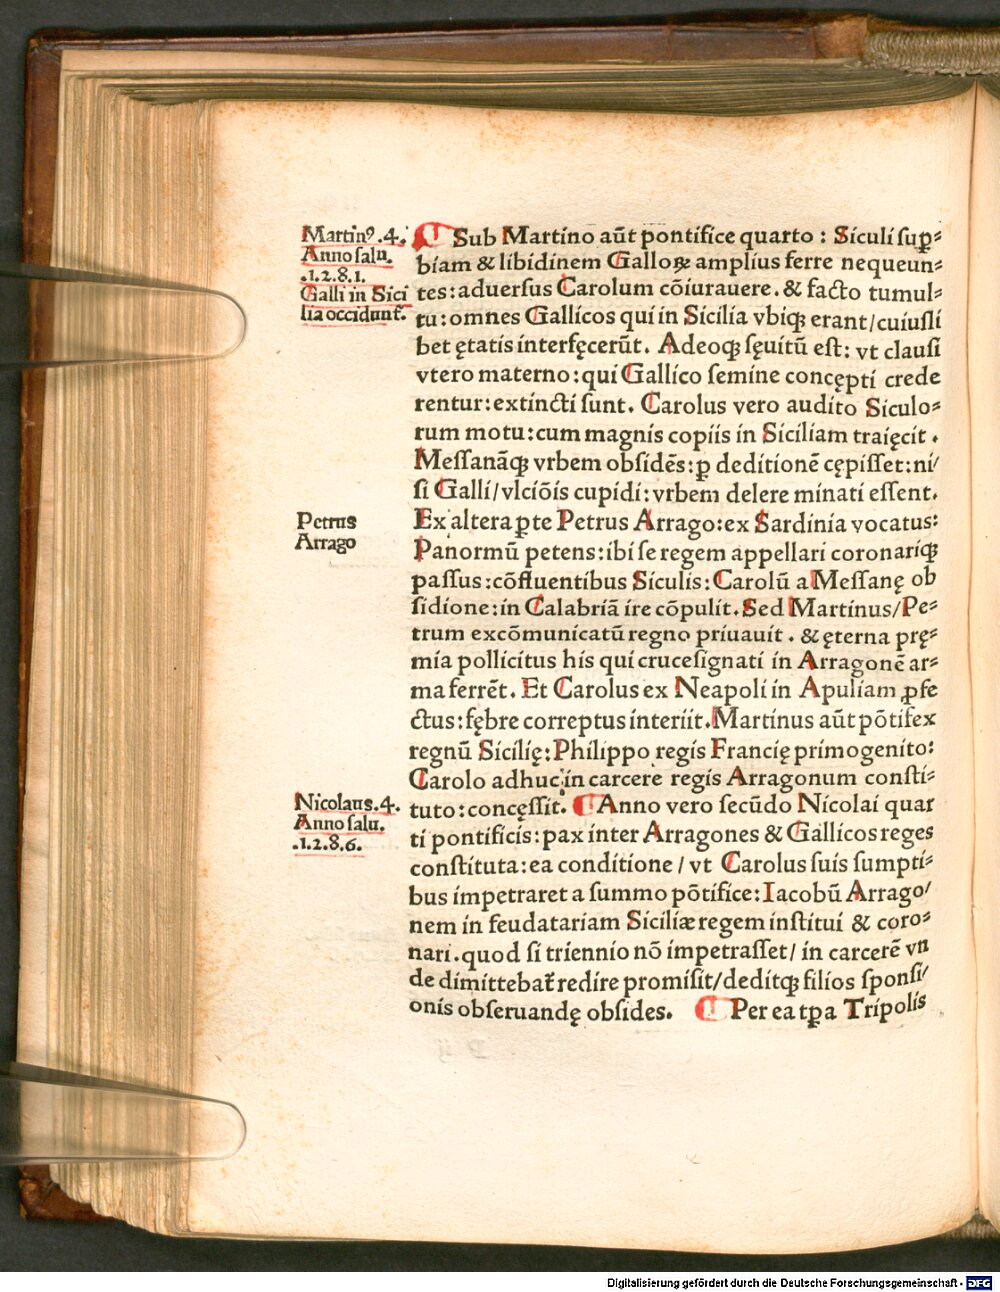 Martinꝰ.4.
Anno salu.
.1.2.8.1.
Galli in Sici
lia occidunt᷑.
¶ Sub Martino aūt pontifice quarto : Siculi suꝑ⸗
biam & libidinem Galloꝝ amplius ferre nequeun⸗
tes:aduersus Carolum cōiurauere. & facto tumul⸗
tu:omnes Gallicos qui in Sicilia vbiqꝫ erant/cuiusli
bet ętatis interfęcerūt. Adeoqꝫ sęuitū est: vt clausi
vtero materno:qui Gallico semine concępti crede
rentur:extincti sunt. Carolus vero audito Siculo⸗
rum motu:cum magnis copiis in Siciliam traięcit .
Messanāqꝫ vrbem obsidēs:ꝑ deditionē cępisset:ni/
si Galli/vlciōis cupidi:vrbem delere minati essent.
Petrus
Arrago
Ex altera ꝑte Petrus Arrago:ex Sardinia vocatus:
Panormū petens:ibi se regem appellari coronariqꝫ
passus:cōfluentibus Siculis:Carolū a Messanę ob
sidione:in Calabriā ire cōpulit.Sed Martinus/Pe⸗
trum excōmunicatū regno priuauit . & ęterna prę⸗
mia pollicitus his qui crucesignati in Arragonē ar⸗
ma ferrēt. Et Carolus ex Neapoli in Apuliam ꝓfe
ctus:fębre correptus interiit.Martinus aūt pōtifex
regnū Sicilię:Philippo regis Francię primogenito:
Carolo adhuc in carcere regis Arragonum consti⸗
Nicolaus.4.
Anno salu.
.1.2.8.6.
tuto:concęssit. ¶ Anno vero secūdo Nicolai quar
ti pontificis:pax inter Arragones & Gallicos reges
constituta:ea conditione / vt Carolus suis sumpti⸗
bus impetraret a summo pōtifice:Iacobū Arrago/
nem in feudatariam Siciliæ regem institui & coro⸗
nari.quod si triennio nō impetrasset/ in carcerē vn
de dimittebat᷑ redire promisit/deditqꝫ filios sponsi/
onis obseruandę obsides. ¶ Per ea tꝑa Tripolis
Digitalisierung gefördert durch die Deutsche Forschungsgemeinschaft - DFG